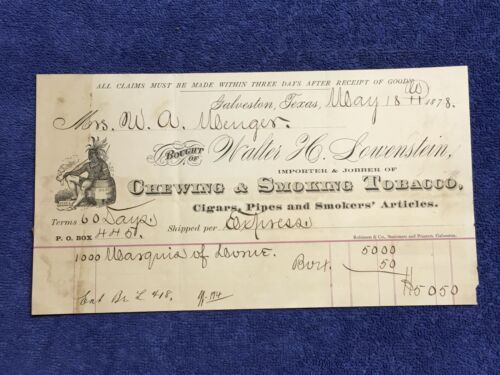 ALL CLAIMS MUST BE MADE WITHIN THREE DAYS AFTER RECEIPT OF GOODS
Galveston, Texas, May 18 1878.
Mrs. W. A. Menger.
BOUGHT OF Walter H. Lowenstein,
IMPORTER & JOBBER OF
CHEWING & SMOKING TOBACCO,
Cigars, Pipes and Smokers' Articles.
Terms 60 Days Shipped per Express
P. O. BOX 445.
Robinson & Co., Stationers and Printers, Galveston.
1000 Marquis of Lorne. 5000
50
5050